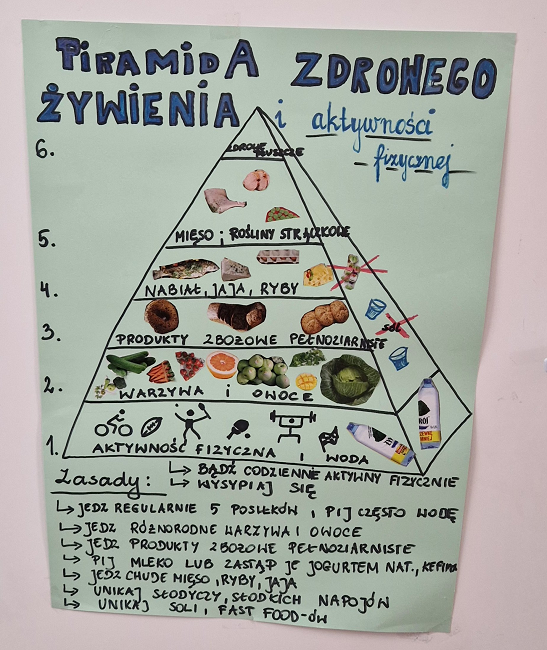 PiRAMiDA ZDROWEGO
ŻYWIENIA i aktywności
fizycznej
6. ZDROWE TŁUSZCZE
5. MIĘSO i ROŚLINY STRĄCZKOWE
4. NABIAŁ, JAJA, RYBY
3. PRODUKTY ZBOŻOWE PEŁNOZIARNISTE
sól
2. WARZYWA i OWOCE
1. AKTYWNOŚĆ FIZYCZNA I WODA
Zasady:
↳ BĄDŹ CODZIENNE AKTYWNY FIZYCZNIE
↳ WYSYPIAJ SIĘ
↳ JEDZ REGULARNIE 5 POSIŁKÓW i PIJ CZĘSTO WODĘ
↳ JEDZ RÓŻNORODNE WARZYWA I OWOCE
↳ JEDZ PRODUKTY ZBOŻOWE PEŁNOZIARNISTE
↳ PIJ MLEKO LUB ZASTĄP JE JOGURTEM NAT., KEFIREM
↳ JEDZ CHUDE MIĘSO, RYBY, JAJA
↳ UNIKAJ SŁODYCZY, SŁODKICH NAPOJÓW
↳ UNIKAJ SOLI, FAST FOOD-ÓW